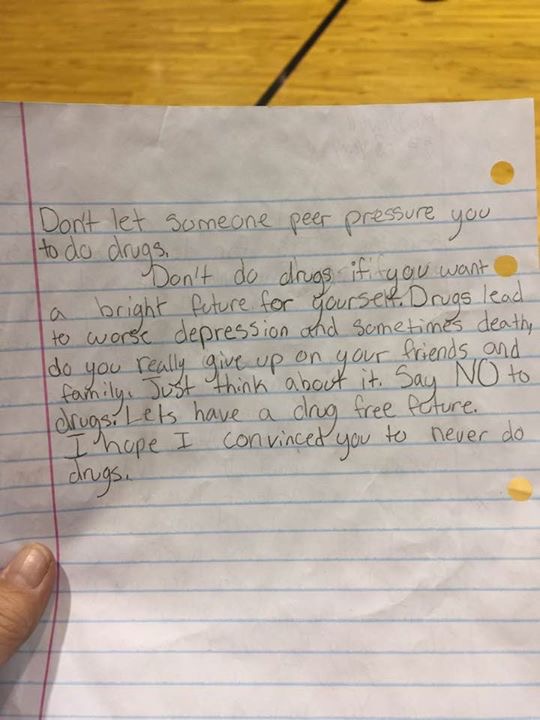 Don't let someone peer pressure you
to do drugs.
Don't do drugs if you want
a bright future for yourself. Drugs lead
to worse depression and sometimes death,
do you really give up on your friends and
family. Just think about it. Say NO to
drugs. Lets have a drug free future.
I hope I convinced you to never do
drugs.